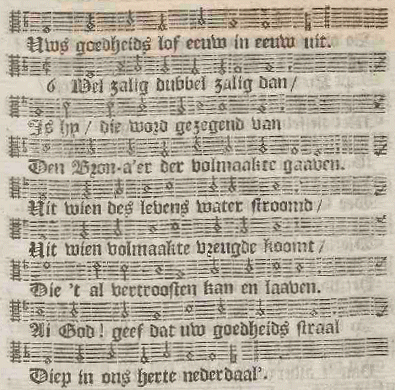 Uws goedheids lof eeuw in eeuw uit.
6 Wel zalig dubbel zalig dan /
Is hy / die word gezegend van
Den Bron-a'er der volmaakte gaaven.
Uit wien des levens water stroomd /
Uit wien volmaakte vreugde koomt /
Die 't al vertroosten kan en laaven.
Ai God! geef dat uw goedheids straal
Diep in ons herte nederdaal'.